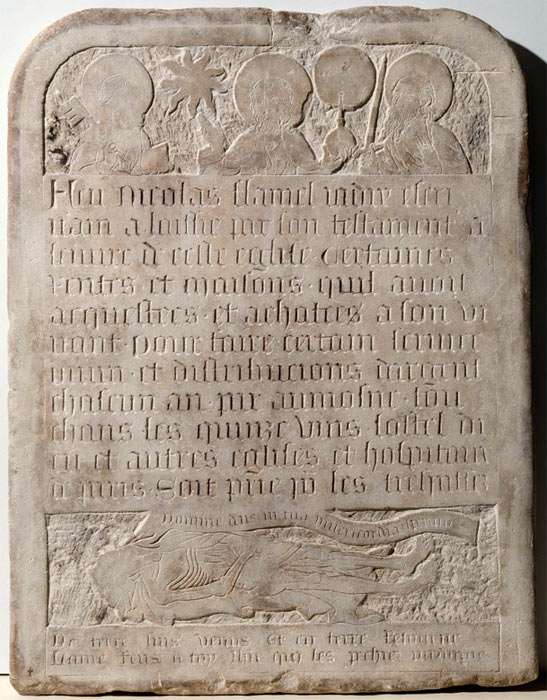 Feu nicolas flamel iadis escri
uain a laissie par son testament a
leuure de ceste eglise certaines
rentes et maisons quil auoit
acquestees et achatees a son ui
uant pour faire certain seruice
diuin et distribucions dargent
chascun an par aumosne tou
chans les quinze uins lostel di
eu et autres eglises et hospitaux
de paris Soit prie les
domine deus in tua misericordia speraui
De terre suis uenus et en terre retourne
Lame rens a toy ihu qui les pechiez pardonne